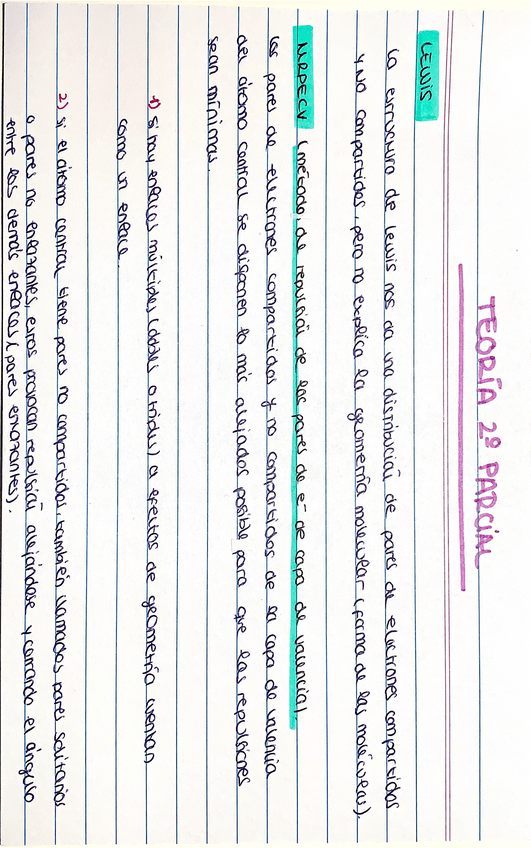 TEORÍA 2º PARCIAL
LEWIS
La estructura de Lewis nos da una distribución de pares de electrones compartidos
y no compartidos, pero no explica la geometría molecular (forma de las moléculas).
MRPECV (método de repulsión de los pares de e- de capa de valencia).
Los pares de electrones compartidos y no compartidos de la capa de valencia
del átomo central se disponen lo más alejados posible para que las repulsiones
sean mínimas.
1) Si hay enlaces múltiples (dobles o triples) a efectos de geometría cuentan
como un enlace.
2) Si el átomo central tiene pares no compartidos, también llamados pares solitarios
o pares no enlazantes, estos provocan repulsión alejándose y cerrando el ángulo
entre los demás enlaces (pares enlazantes).